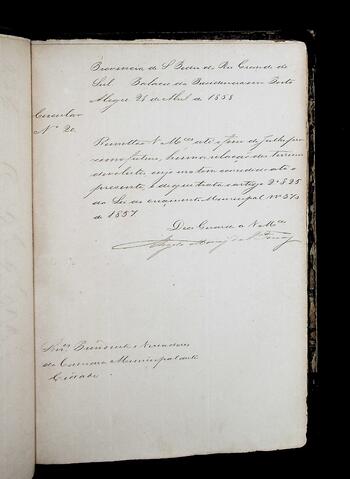 Provincia de S. Pedro do Rio Grande do
Sul Palacio da Presidencia em Porto
Alegre 28 de Abril de 1858
Circular
Nº 20
Remettão V Mces até o fim de Julho pro
ximo futuro, huma relação dos terrenos
devolutos, cujo
presente, e de que trata o artigo 2º § 25
da Lei de orçamento Municipal Nº 370
de 1857.
Deos Guarde a V Mces
Snres Presidente e Vereadores
da Camara Municipal desta
Cidade